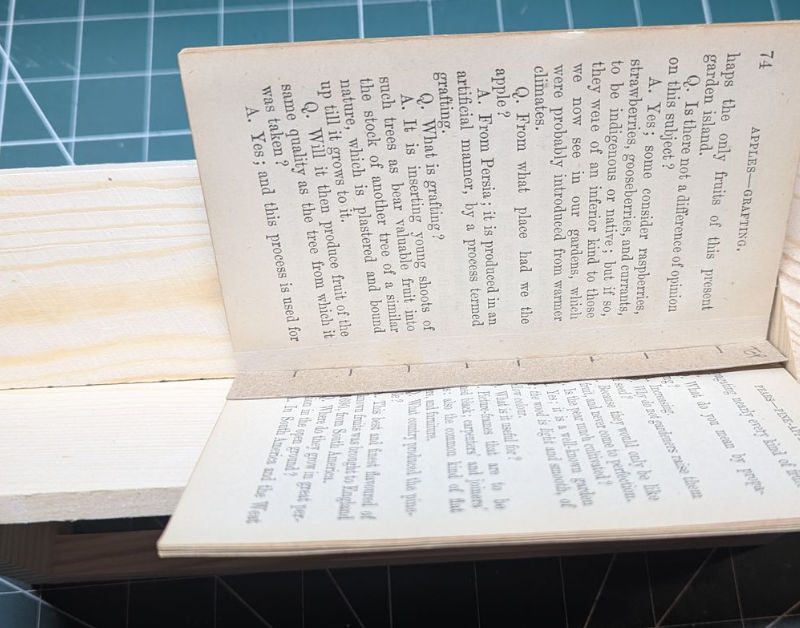 74
APPLES—GRAFTING.
haps the only fruits of this present
garden island.
Q. Is there not a difference of opinion
on this subject?
A. Yes; some consider raspberries,
strawberries, gooseberries, and currants,
to be indigenous or native; but if so,
they were of an inferior kind to those
we now see in our gardens, which
were probably introduced from warmer
climates.
Q. From what place had we the
apple?
A. From Persia; it is produced in an
artificial manner, by a process termed
grafting.
Q. What is grafting?
A. It is inserting young shoots of
such trees as bear valuable fruit into
the stock of another tree of a similar
nature, which is plastered and bound
up till it grows to it.
Q. Will it then produce fruit of the
same quality as the tree from which it
was taken?
A. Yes; and this process is used for
nearly every kind of
What do you mean by propa-
do not gardeners raise them
seed?
they would only be like
and never come to perfection.
Is the pear much cultivated?
Yes; it is a well-known garden
the wood is light and smooth, of
colour.
What is it useful for?
that are to be
black; carpenters' and joiners'
also the common kind of flat
and furniture.
What country produced the pine-
This best and finest flavoured of
known fruits was brought to England
from South America.
Where do they grow in great per-
in the open ground?
In South America and the West